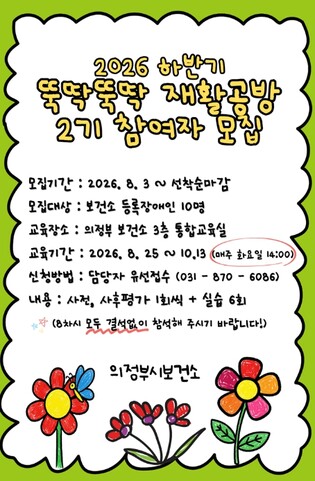 2026 하반기
뚝딱뚝딱 재활공방
2기 참여자 모집
모집기간 : 2026. 8. 3 ~ 선착순마감
모집대상 : 보건소 등록장애인 10명
교육장소 : 의정부 보건소 3층 통합교육실
교육기간 : 2026. 8. 25 ~ 10.13 (매주 화요일 14:00)
신청방법 : 담당자 유선접수 (031 - 870 - 6086)
내용 : 사전, 사후평가 1회씩 + 실습 6회
(8차시 모두 결석없이 참석해 주시기 바랍니다!)
의정부시보건소